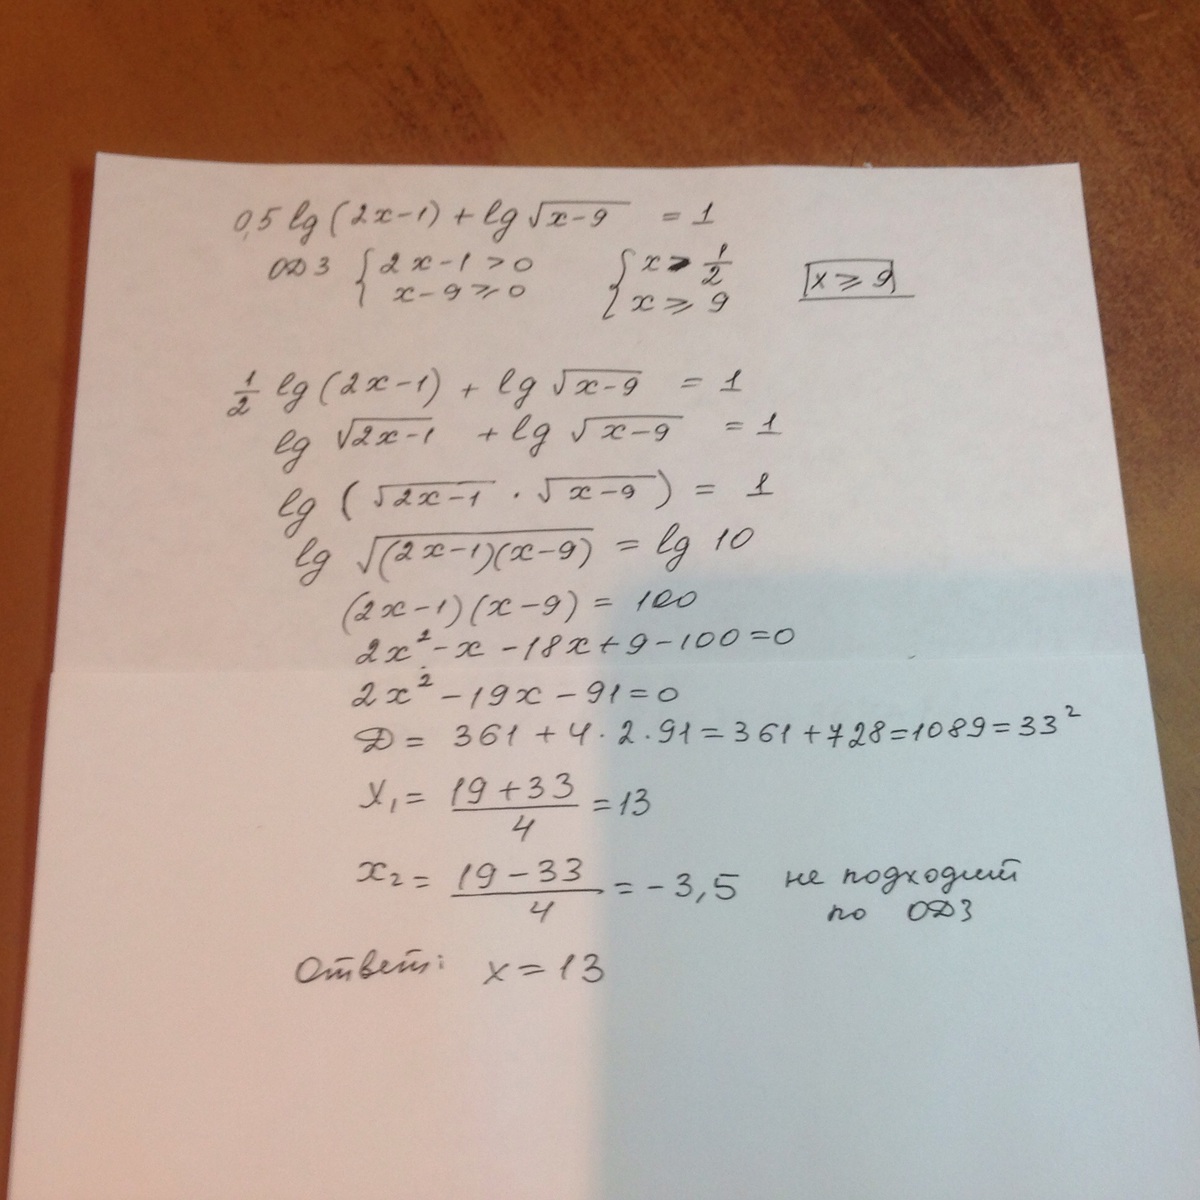 0,5 lg(2x-1) + lg√(x-9) = 1
ОДЗ { 2x-1>0 { x > 1/2 x ⩾ 9
x-9⩾0 x ⩾ 9
1/2 lg(2x-1) + lg√(x-9) = 1
lg √(2x-1) + lg √(x-9) = 1
lg (√(2x-1) · √(x-9)) = 1
lg √((2x-1)(x-9)) = lg 10
(2x-1)(x-9) = 100
2x² - x - 18x + 9 - 100 = 0
2x² - 19x - 91 = 0
D = 361 + 4·2·91 = 361 + 728 = 1089 = 33²
x₁ = (19+33)/4 = 13
x₂ = (19-33)/4 = -3,5 не подходит
по ОДЗ
Ответ: x = 13